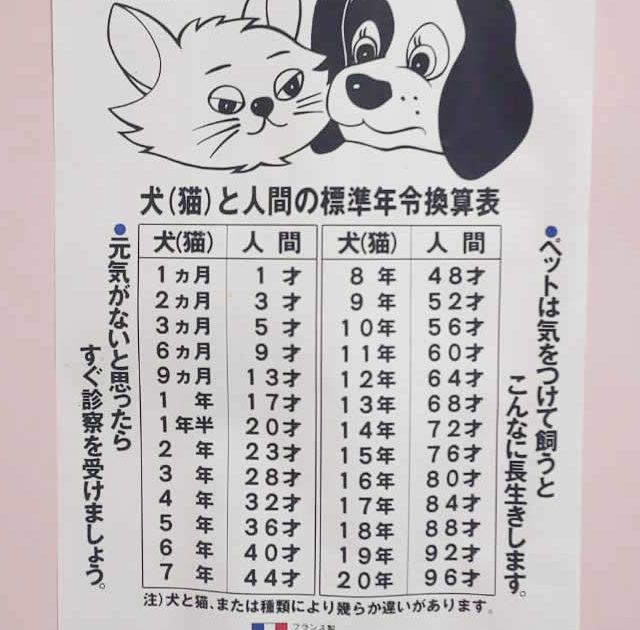 犬(猫)と人間の標準年令換算表
●ペットは気をつけて飼うと
こんなに長生きします。
犬(猫) 人間 犬(猫) 人間
1ヵ月 1才 8年 48才
2ヵ月 3才 9年 52才
3ヵ月 5才 10年 56才
6ヵ月 9才 11年 60才
9ヵ月 13才 12年 64才
1年 17才 13年 68才
1年半 20才 14年 72才
2年 23才 15年 76才
3年 28才 16年 80才
4年 32才 17年 84才
5年 36才 18年 88才
6年 40才 19年 92才
7年 44才 20年 96才
●元気がないと思ったら
すぐ診察を受けましょう。
注)犬と猫、または種類により幾らか違いがあります。
フランス製